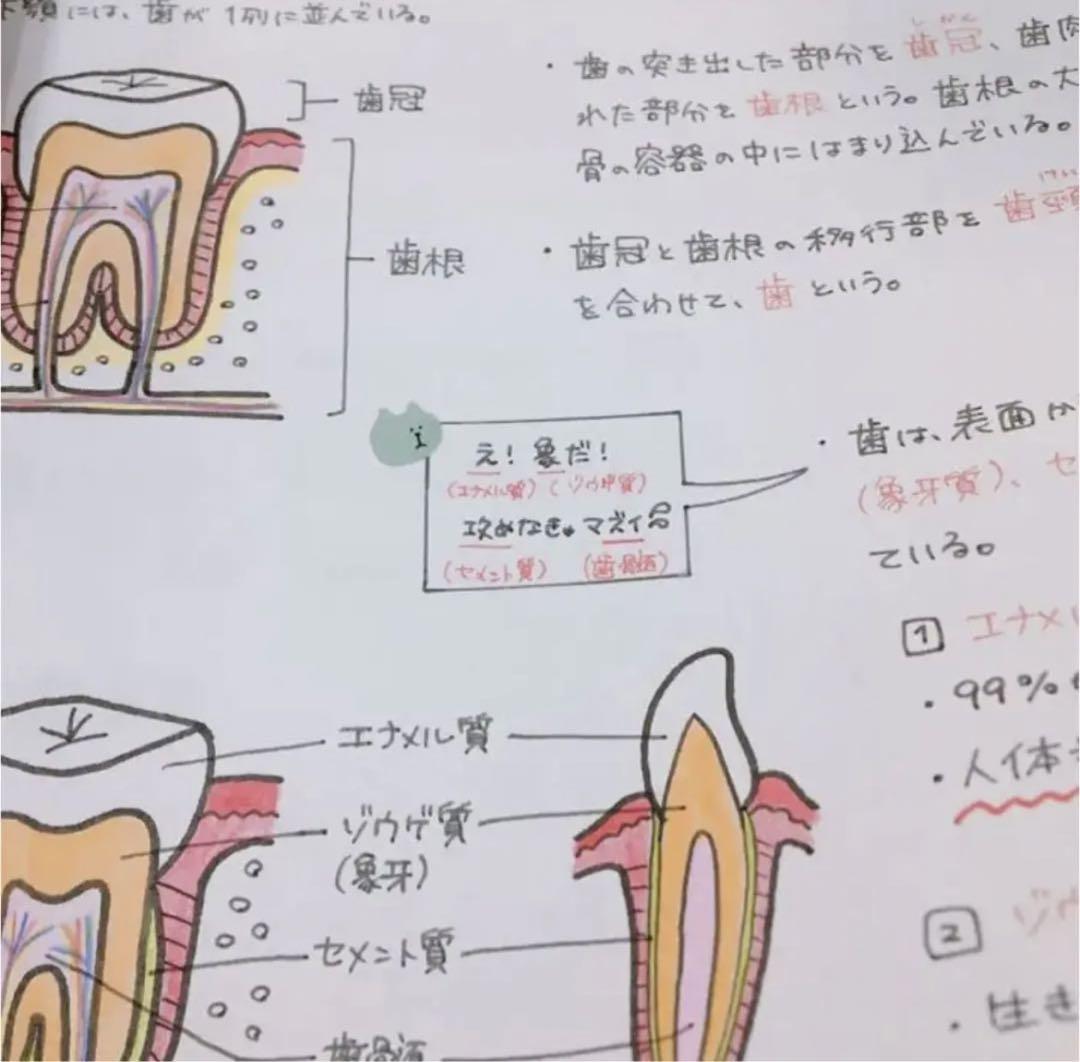 には、歯が1列に並んでいる。
歯冠
歯根
・歯の突き出した部分を歯冠、歯肉
しかん
れた部分を歯根という。歯根の大
骨の容器の中にはまり込んでいる。
・歯冠と歯根の移行部を歯頸
けい
を合わせて、歯という。
え！象だ！
(エナメル質)(ゾウゲ質)
攻めなきゃマズイ
(セメント質) (歯髄)
・歯は、表面か
(象牙質)、セ
ている。
1 エナメ
・99%
・人体
2 ゾウ
・生き
エナメル質
ゾウゲ質
(象牙)
セメント質